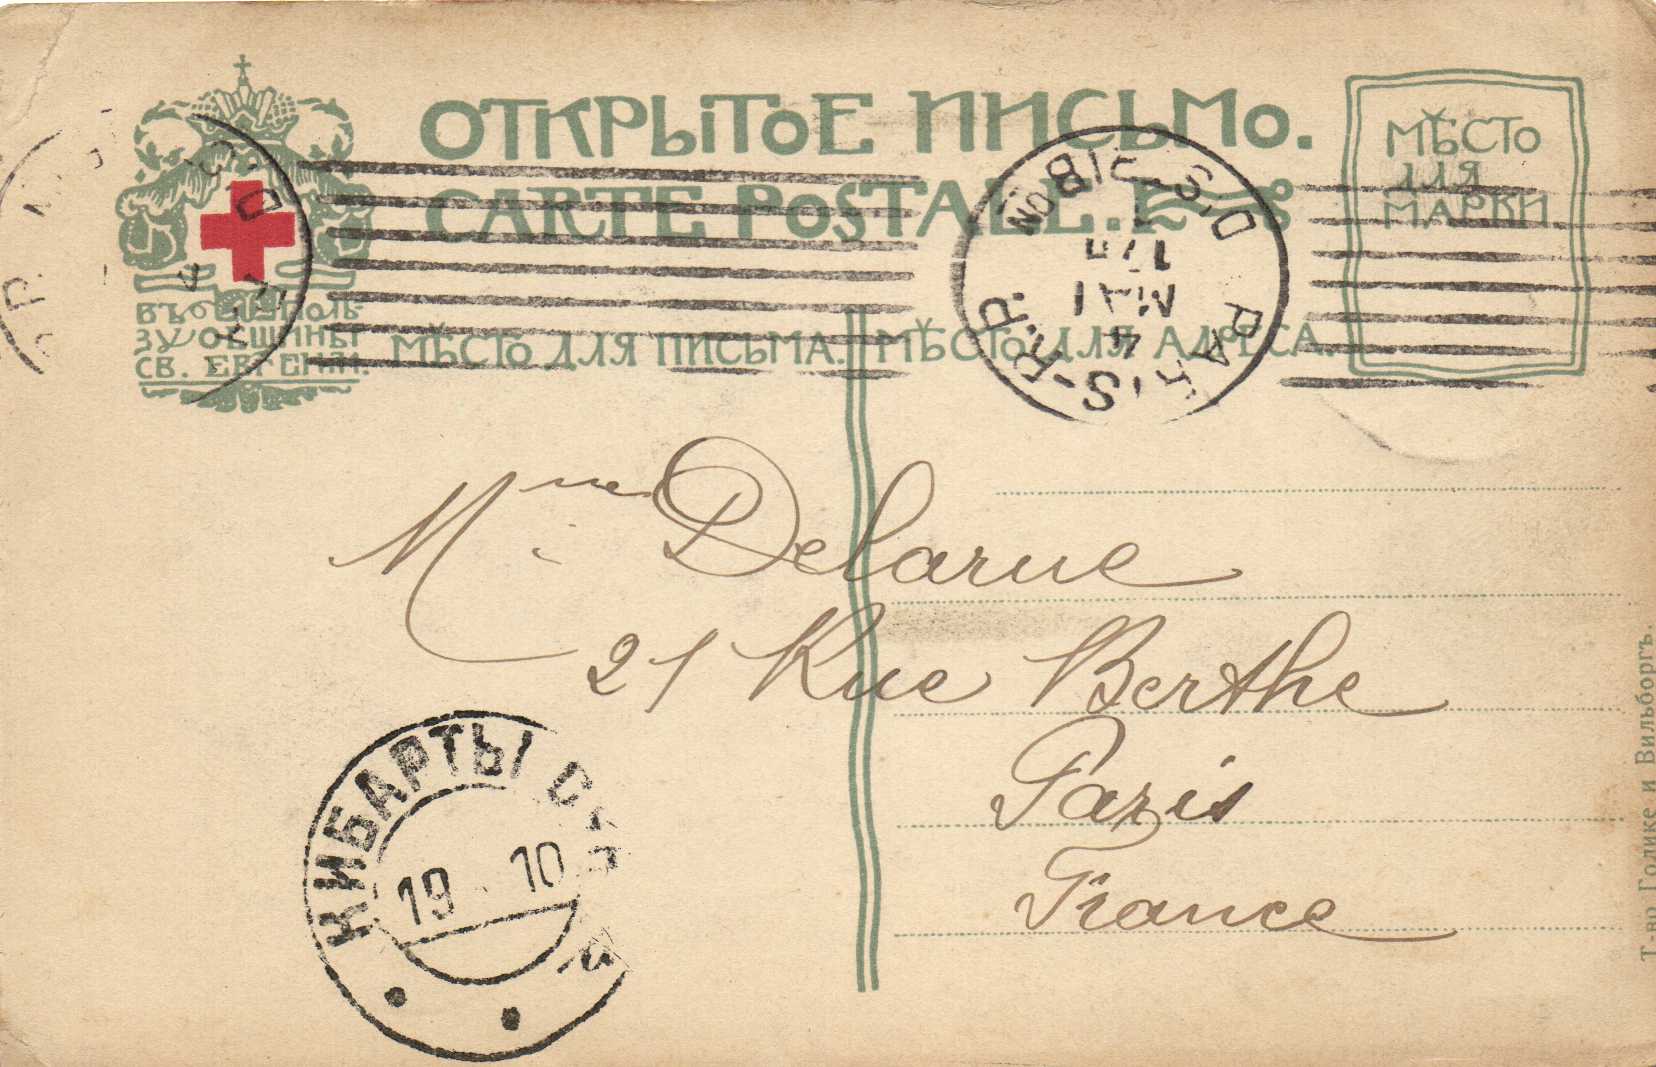 ОТКРЫТОЕ ПИСЬМО.
CARTE POSTALE.
МѢСТО
ДЛЯ
МАРКИ
ВЪ ПОЛЬ-
ЗУ ОБЩИНЫ
СВ. ЕВГЕНІИ.
МѢСТО ДЛЯ ПИСЬМА. МѢСТО ДЛЯ АДРЕСА.
PARIS
R.P.
4
MAI
Mme Delarue
21 Rue Berthe
Paris
France
КИБАРТЫ
19 10
Т-во Голике и Вильборгъ.